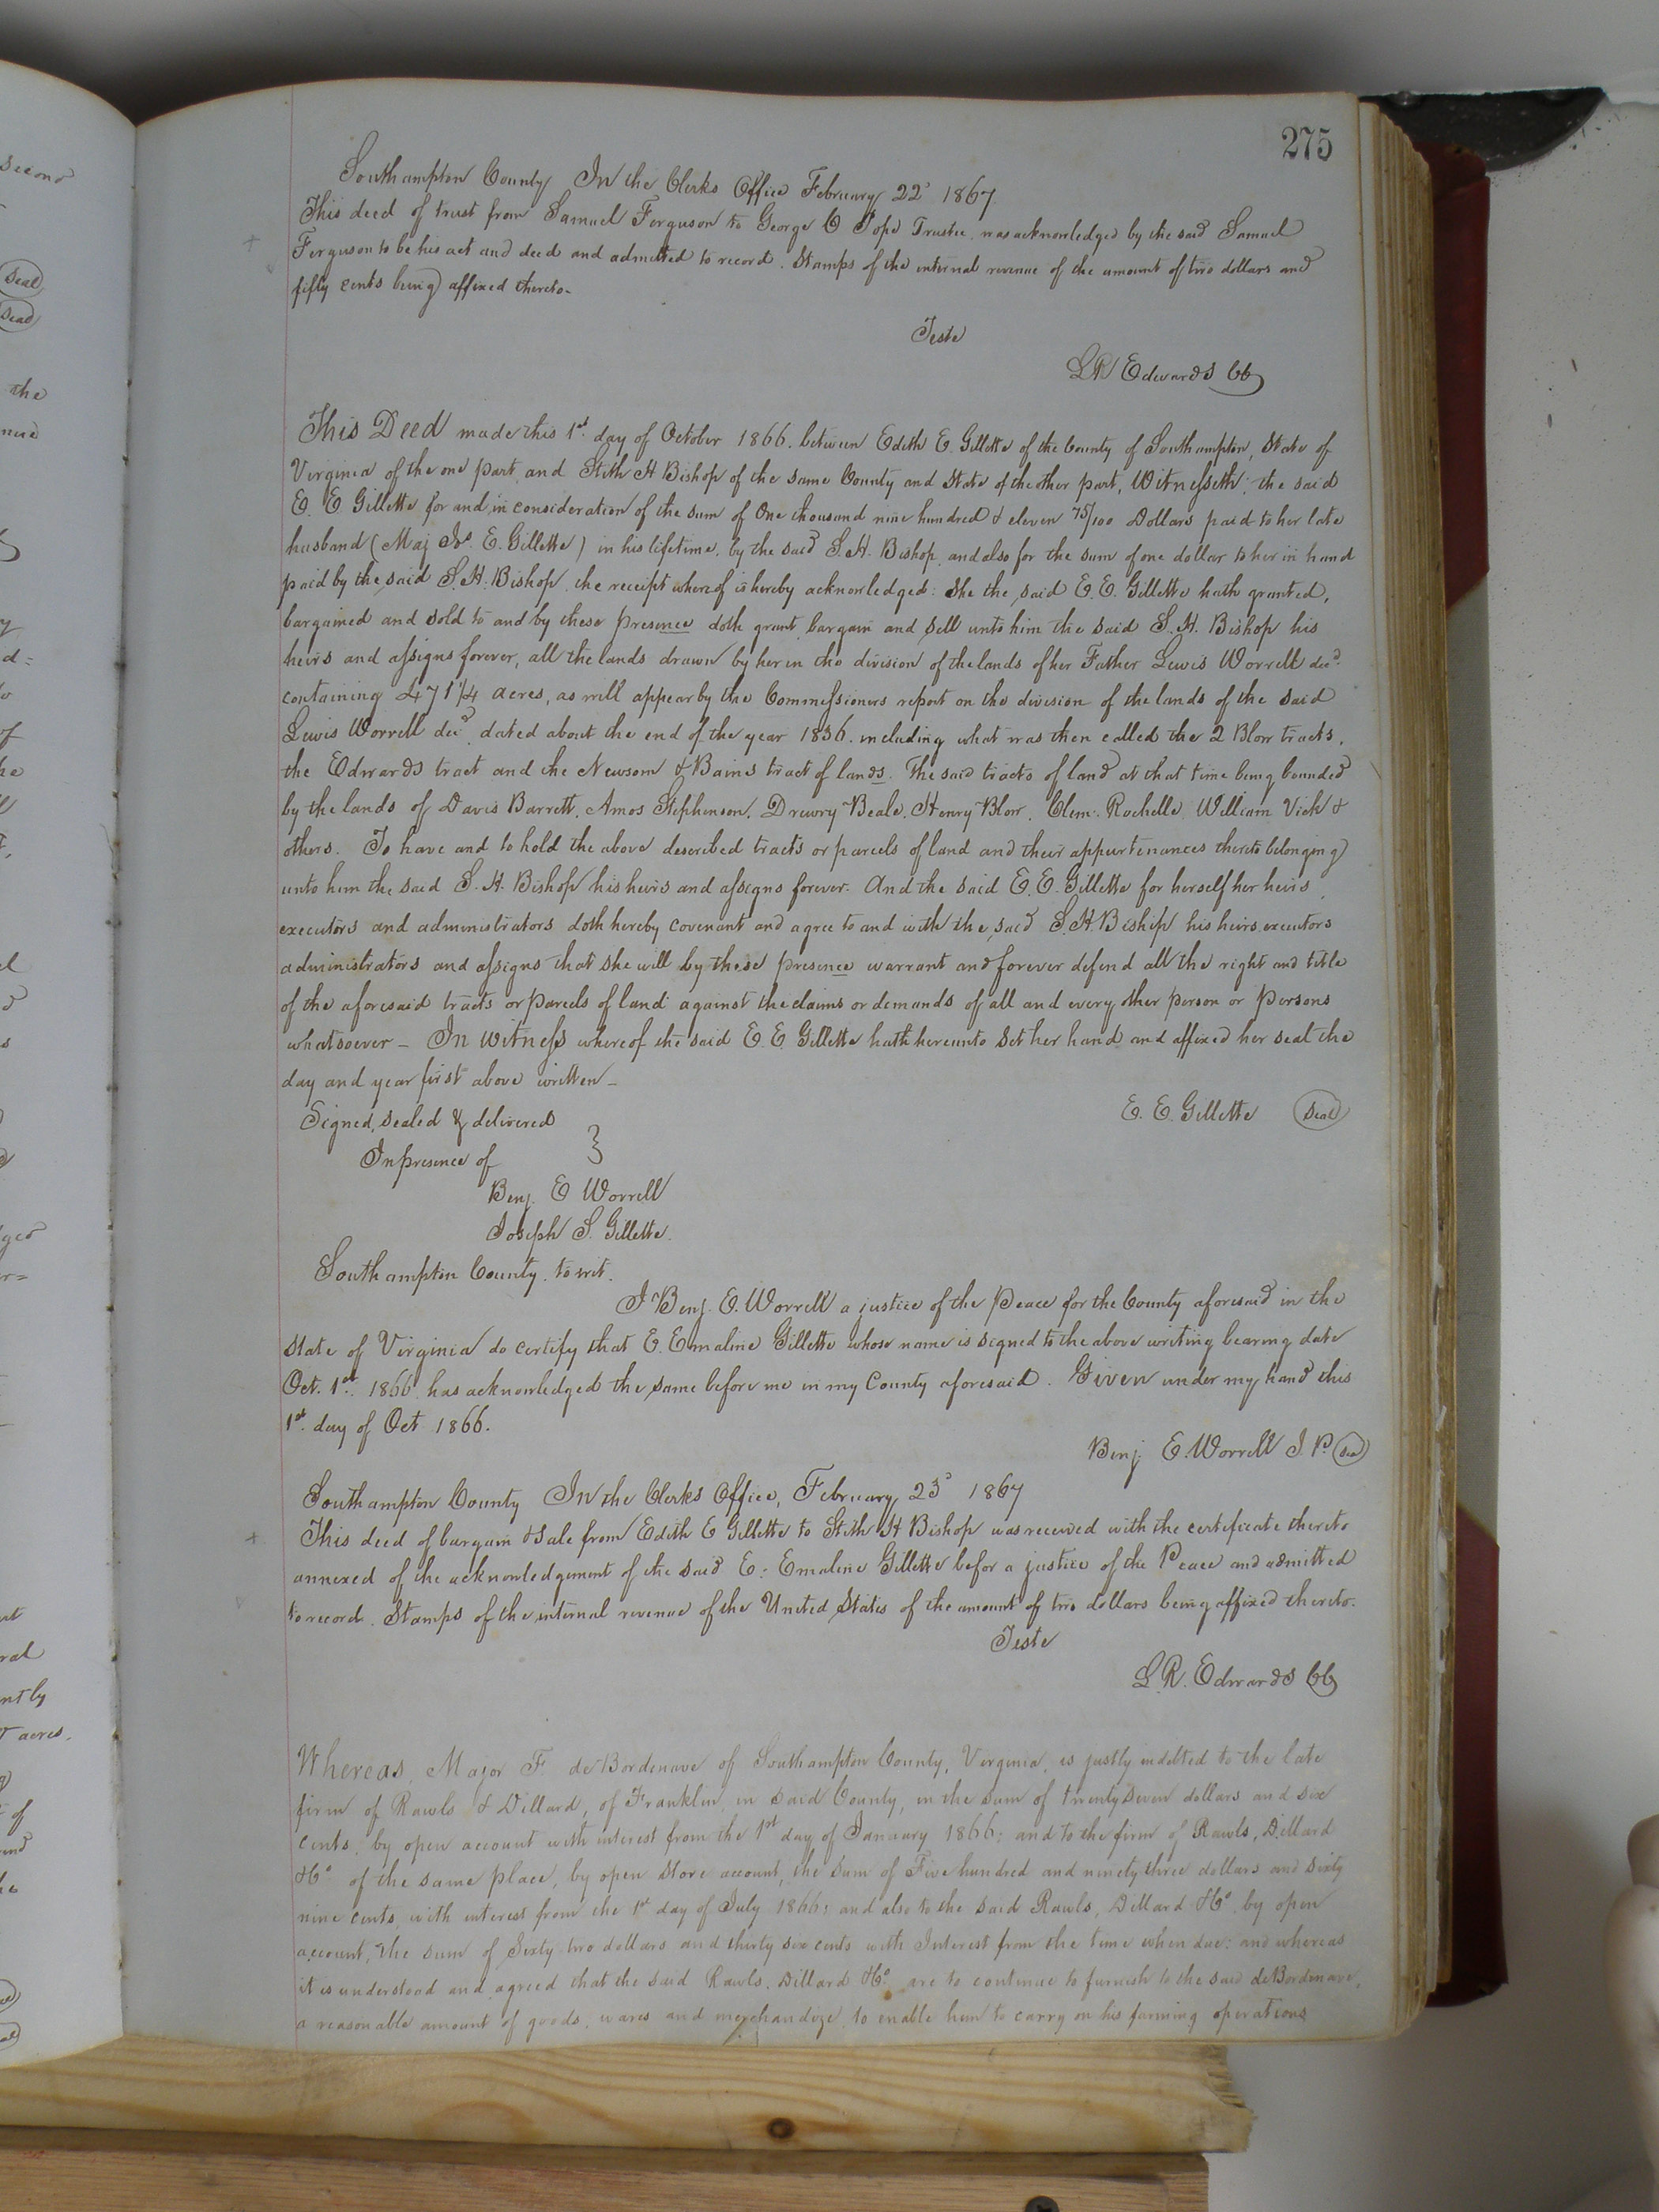 275
Southampton County In the Clerks Office February 22d 1867
This deed of trust from Samuel Ferguson to George O Pope Trustee was acknowledged by the said Samuel
Ferguson to be his act and deed and admitted to record. Stamps of the internal revenue of the amount of two dollars and
fifty cents being affixed thereto-
Teste
LR Edwards CC
This Deed made this 1st day of October 1866. between Edith E. Gillette of the County of Southampton, State of
Virginia of the one part, and Stith H Bishop of the same County and State of the other part, Witnesseth; the said
E. E. Gillette for and in consideration of the sum of One thousand nine hundred & eleven 75/100 Dollars paid to her late
husband (Maj Jno. E. Gillette) in his lifetime, by the said S.H. Bishop, and also for the sum of one dollar to her in hand
paid by the said S.H. Bishop the receipt whereof is hereby acknowledged: She the said E. E. Gillette hath granted,
bargained and sold to and by these presence doth grant, bargain and sell unto him the said S. H. Bishop his
heirs and assigns forever, all the lands drawn by her in the division of the lands of her Father Lewis Worrell decd.
containing 471 1/4 acres, as will appear by the Commissioners report on the division of the lands of the said
Lewis Worrell decd, dated about the end of the year 1836. including what was then called the 2 Blow tracts,
the Edwards tract and the Newsom & Bains tract of lands. The said tracts of land at that time being bounded
by the lands of Davis Barrett, Amos Stephenson, Drewry Beale, Henry Blow, Clem: Rochelle, William Vick &
others. To have and to hold the above described tracts or parcels of land and their appurtenances thereto belonging
unto him the said S. H. Bishop his heirs and assigns forever. And the said E. E. Gillette for herself her heirs,
executors and administrators doth hereby covenant and agree to and with the said S. H. Biship his heirs, executors
administrators and assigns that she will by these presence warrant and forever defend all the right and title
of the aforesaid tracts or parcels of land against the claims or demands of all and every other person or persons
whatsoever - In witness whereof the said E. E. Gillette hath hereunto set her hand and affixed her seal the
day and year first above written -
E. E. Gillette Seal
Signed, sealed & delivered
In presence of
Benj. E Worrell
Joseph S. Gillette.
Southampton County. to wit.
I Benj. E. Worrell a justice of the Peace for the County aforesaid in the
State of Virginia do certify that E. Emaline Gillette whose name is signed to the above writing bearing date
Oct. 1st. 1866, has acknowledged the same before me in my County aforesaid. Given under my hand this
1st. day of Oct 1866.
Benj. E. Worrell J. P. Seal
Southampton County In the Clerks Office, February 23d 1867
This deed of bargain & sale from Edith E Gillette to Stith H Bishop was received with the certificate thereto
annexed of the acknowledgement of the said E: Emaline Gillette befor a justice of the Peace and admitted
to record. Stamps of the internal revenue of the United States of the amount of two dollars being affixed thereto.
Teste
L.R. Edwards CC
Whereas, Major F. deBordenave of Southampton County, Virginia, is justly indebted to the late
firm of Rawls & Dillard, of Franklin, in said County, in the sum of twenty seven dollars and six
cents, by open account with interest from the 1st day of Janaury 1866; and to the firm of Rawls, Dillard
& Co of the same place, by open store account, the sum of Five hundred and ninety three dollars and sixty
nine cents, with interest from the 1st day of July 1866; and also to the said Rawls, Dillard & Co. by open
account, the sum of Sixty two dollars and thirty six cents with Interest from the time when due: and whereas
it is understood and agreed that the said Rawls, Dillard & Co. are to continue to furnish to the said deBordenave,
a reasonable amount of goods, wares and merchandize, to enable him to carry on his farming operations